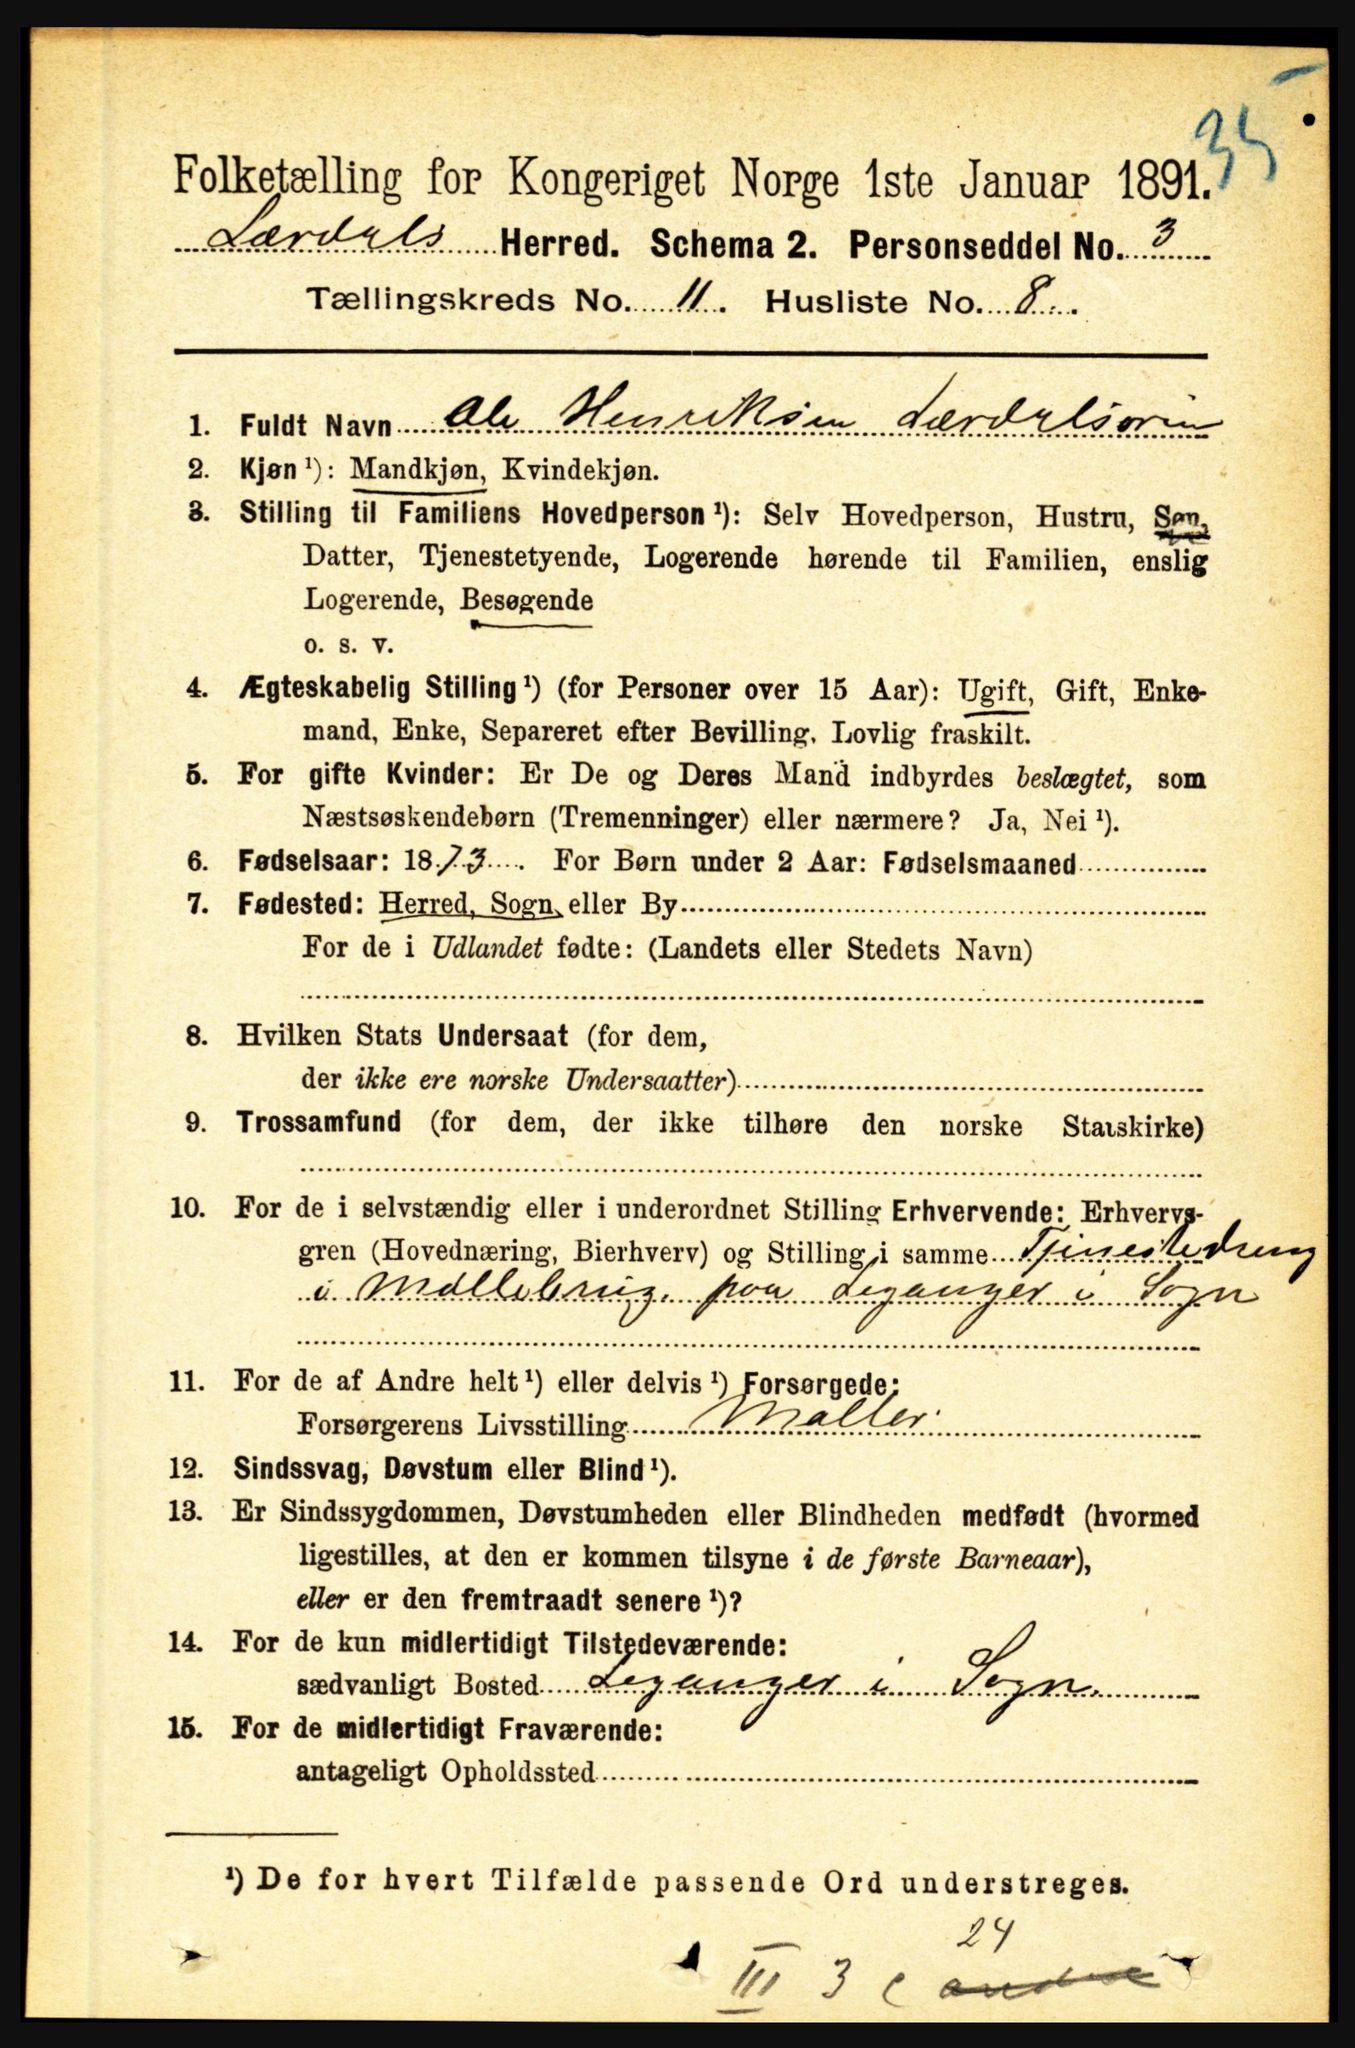 35
Folketælling for Kongeriget Norge 1ste Januar 1891.
Lærdals Herred. Schema 2. Personseddel No. 3
Tællingskreds No. 11. Husliste No. 8.
1. Fuldt Navn Ole Henriksen Lærdalsøren
2. Kjøn ¹): Mandkjøn, Kvindekjøn.
3. Stilling til Familiens Hovedperson ¹): Selv Hovedperson, Hustru, Søn,
Datter, Tjenestetyende, Logerende hørende til Familien, enslig
Logerende, Besøgende
o. s. v.
4. Ægteskabelig Stilling ¹) (for Personer over 15 Aar): Ugift, Gift, Enke-
mand, Enke, Separeret efter Bevilling. Lovlig fraskilt.
5. For gifte Kvinder: Er De og Deres Mand indbyrdes beslægtet, som
Næstsøskendebørn (Tremenninger) eller nærmere? Ja, Nei ¹).
6. Fødselsaar: 1873. For Børn under 2 Aar: Fødselsmaaned
7. Fødested: Herred, Sogn, eller By
For de i Udlandet fødte: (Landets eller Stedets Navn)
8. Hvilken Stats Undersaat (for dem,
der ikke ere norske Undersaatter)
9. Trossamfund (for dem, der ikke tilhøre den norske Statskirke)
10. For de i selvstændig eller i underordnet Stilling Erhvervende: Erhvervs-
gren (Hovednæring, Bierhverv) og Stilling i samme Tjenestedreng
i Møllebrug. paa Leganger i Sogn
11. For de af Andre helt ¹) eller delvis ¹) Forsørgede:
Forsørgerens Livsstilling Møller
12. Sindssvag, Døvstum eller Blind ¹).
13. Er Sindssygdommen, Døvstumheden eller Blindheden medfødt (hvormed
ligestilles, at den er kommen tilsyne i de første Barneaar),
eller er den fremtraadt senere ¹)?
14. For de kun midlertidigt Tilstedeværende:
sædvanligt Bosted Leganger i Sogn.
15. For de midlertidigt Fraværende:
antageligt Opholdssted
¹) De for hvert Tilfælde passende Ord understreges.
24
III 3 c